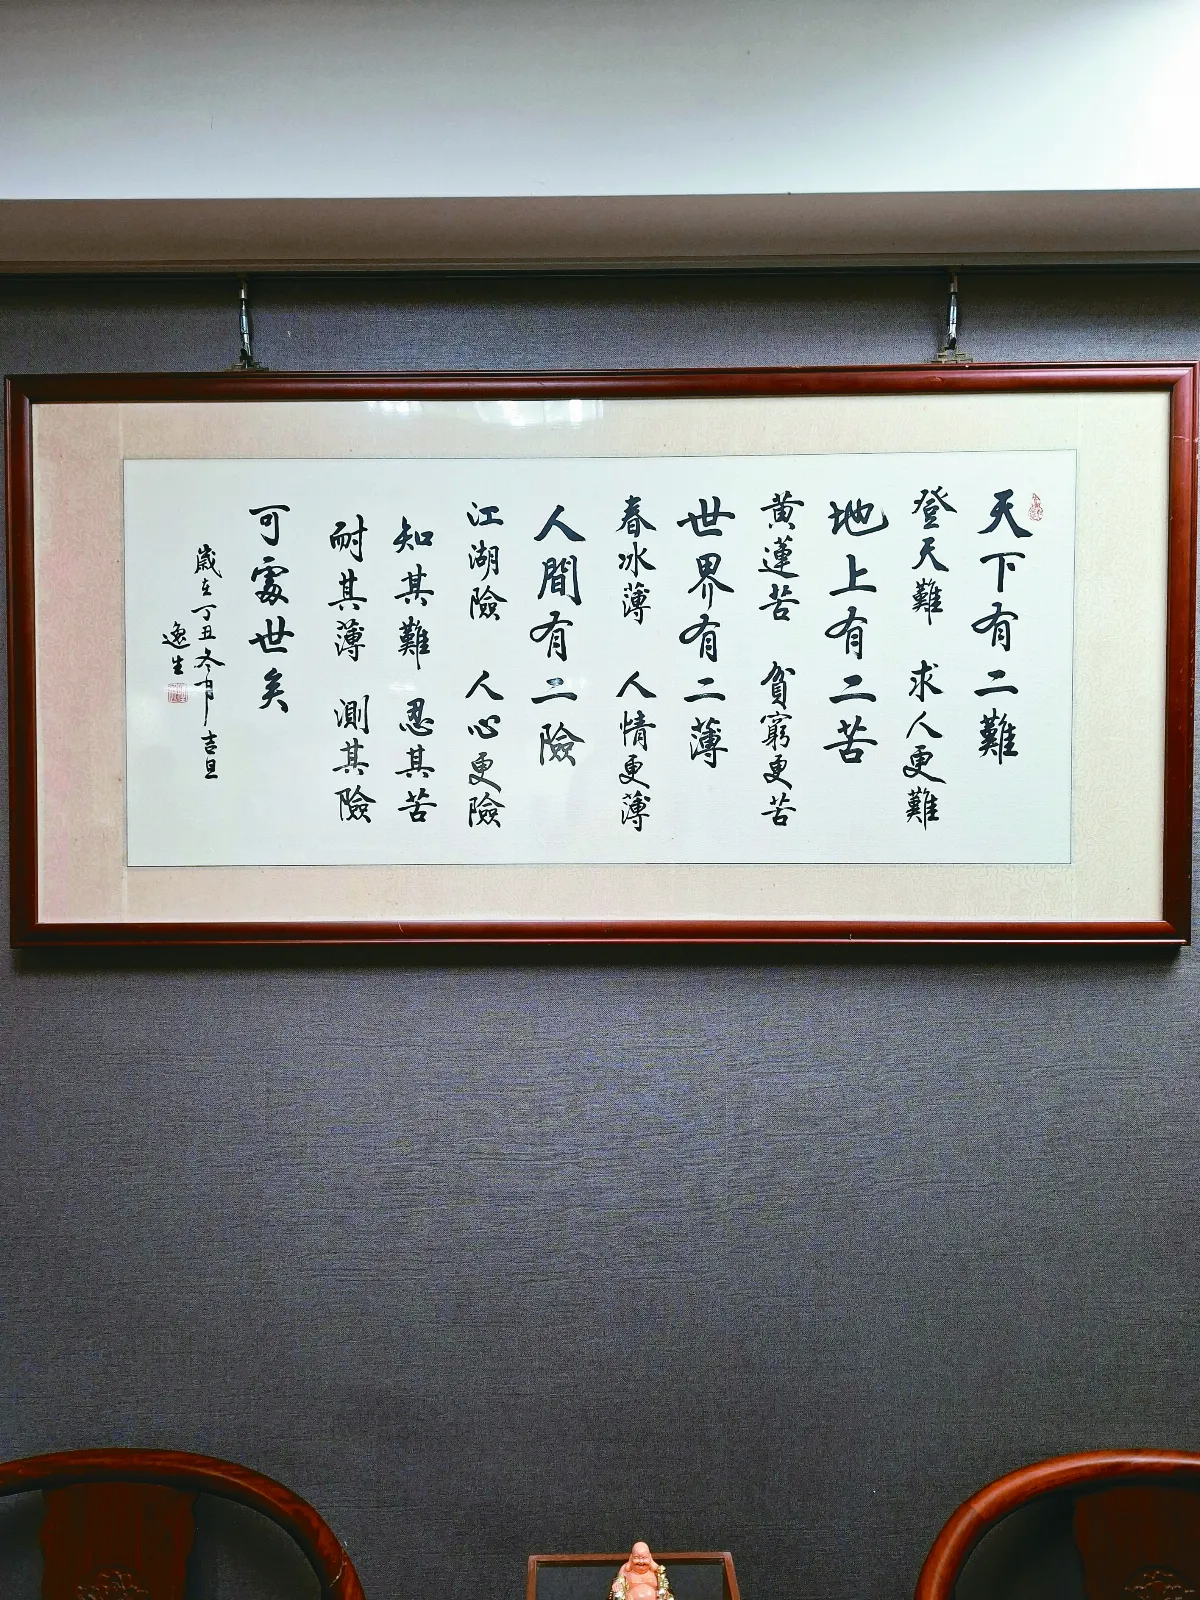 天下有二難
登天難 求人更難
地上有二苦
黄蓮苦 貧窮更苦
世界有二薄
春冰薄 人情更薄
人間有二險
江湖險 人心更險
知其難 忍其苦
耐其薄 測其險
可處世矣
歲在丁丑冬月吉旦
逸生